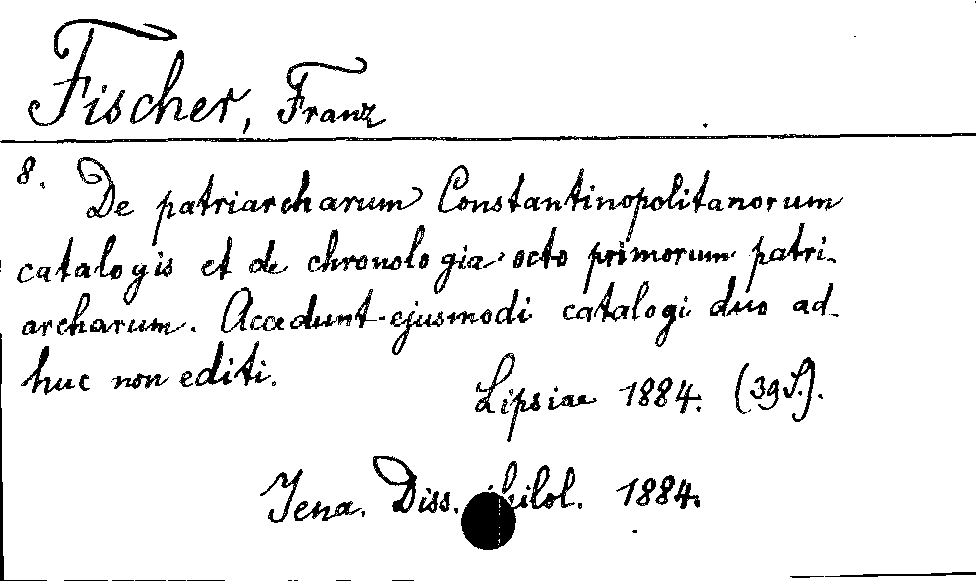 Fischer, Franz
8. De patriarcharum Constantinopolitanorum
catalogis et de chronologia octo primorum patri-
archarum. Accedunt ejusmodi catalogi duo ad-
huc non editi.
Lipsiae 1884. (39 S.).
Jena. Diss. philol. 1884.